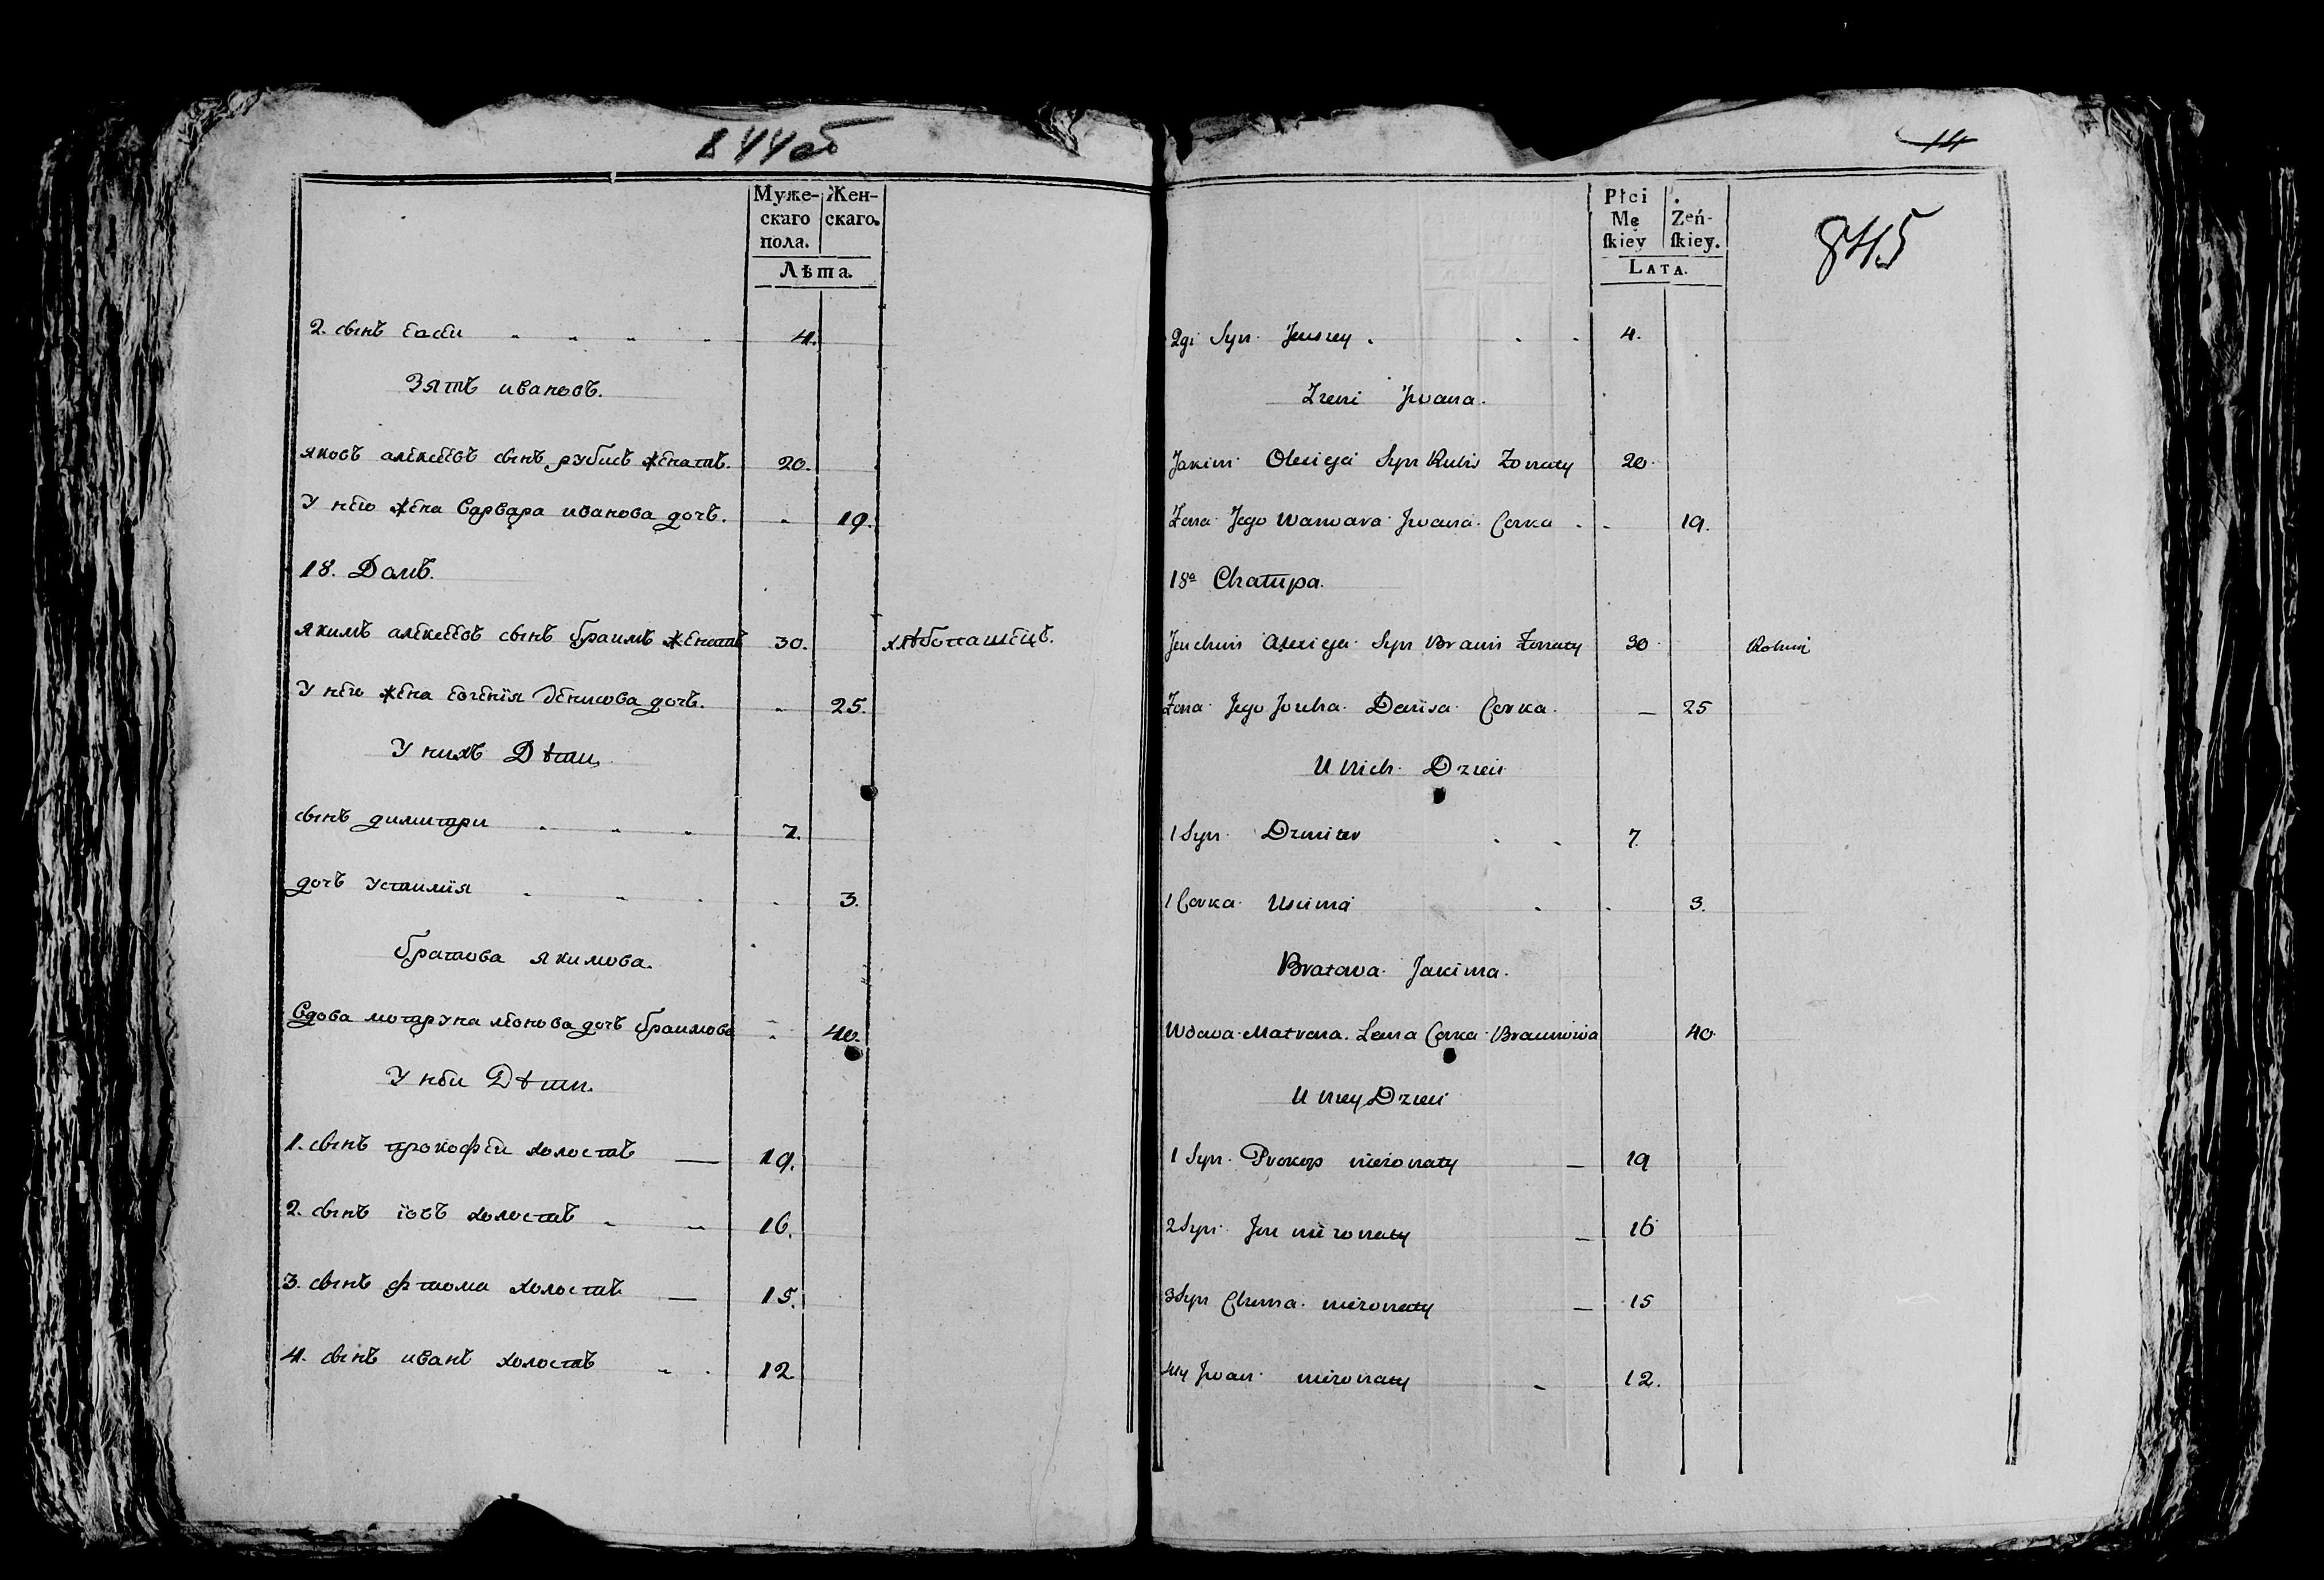 844об
Муже-
скаго
пола.
Жен-
скаго.
Лѣта.
2. сынъ еѵсеи 4.
Зять ивановъ.
яковъ алексеевъ сынъ рубисъ женатъ. 20.
У него жена варвара иванова дочъ. 19.
18. Домъ.
якимъ алексеевъ сынъ браимъ женатъ 30. хлѣбопашецъ.
У него жена евгенїя денисова дочъ. 25.
У нихъ Дѣти.
сынъ димитри 7.
дочъ устимїя 3.
братова якимова.
Вдова мотаруна леонова дочъ браимова 40.
У неи Дѣти.
1. сынъ прокофеи холостъ 19.
2. сынъ їовъ холостъ 16.
3. сынъ фтома холостъ 15.
4. сынъ иванъ холостъ 12
14
845
Płci
Mę
ſkiey
Zeń-
ſkiey.
LATA.
2gi Syn Jeusiey 4.
Zieni Jwana.
Jakim Olexieja Syn Rubis Zonaty 20
Zona Jego Warwara Jwana Corka 19.
18a Chałupa.
Jeuchim Alexieja Syn Braim Zonaty 30 Rolnik
Zona Jego Jeucha Denisa Corka 25
U Nich Dzieci
1 Syn Dzmiter 7
1 Corka Uscima 3.
Bratowa Jakima.
Wdowa Matrona Lewna Corka Braimowa 40
U niey Dzieci
1 Syn Prokop niezonaty 19
2 Syn Jow niezonaty 16
3 Syn Choma niezonaty 15
4ty Jwan niezonaty 12.